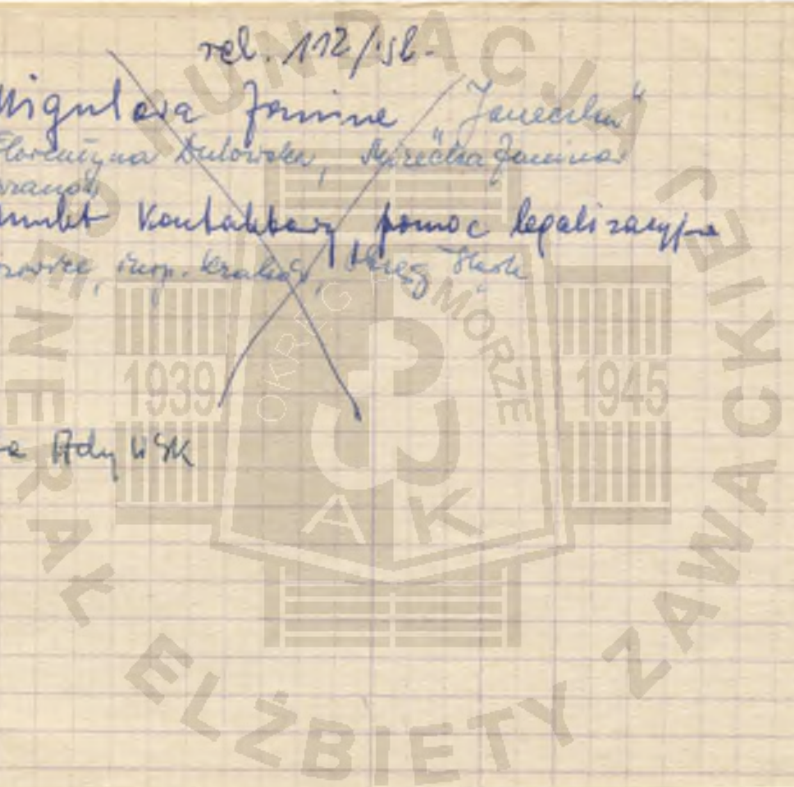 rel. 112/śl.
Migulowa Janina "Janeczka"
Florentyna Dutowska, Mirecka Janina
punkt kontaktowy, pomoc legalizacyjna
insp. Kraków, Okręg Śląsk
Ady WSK
FUNDACJA
GENERAŁ ELŻBIETY ZAWACKIEJ
OKRĘG POMORZE
1939
1945
AK